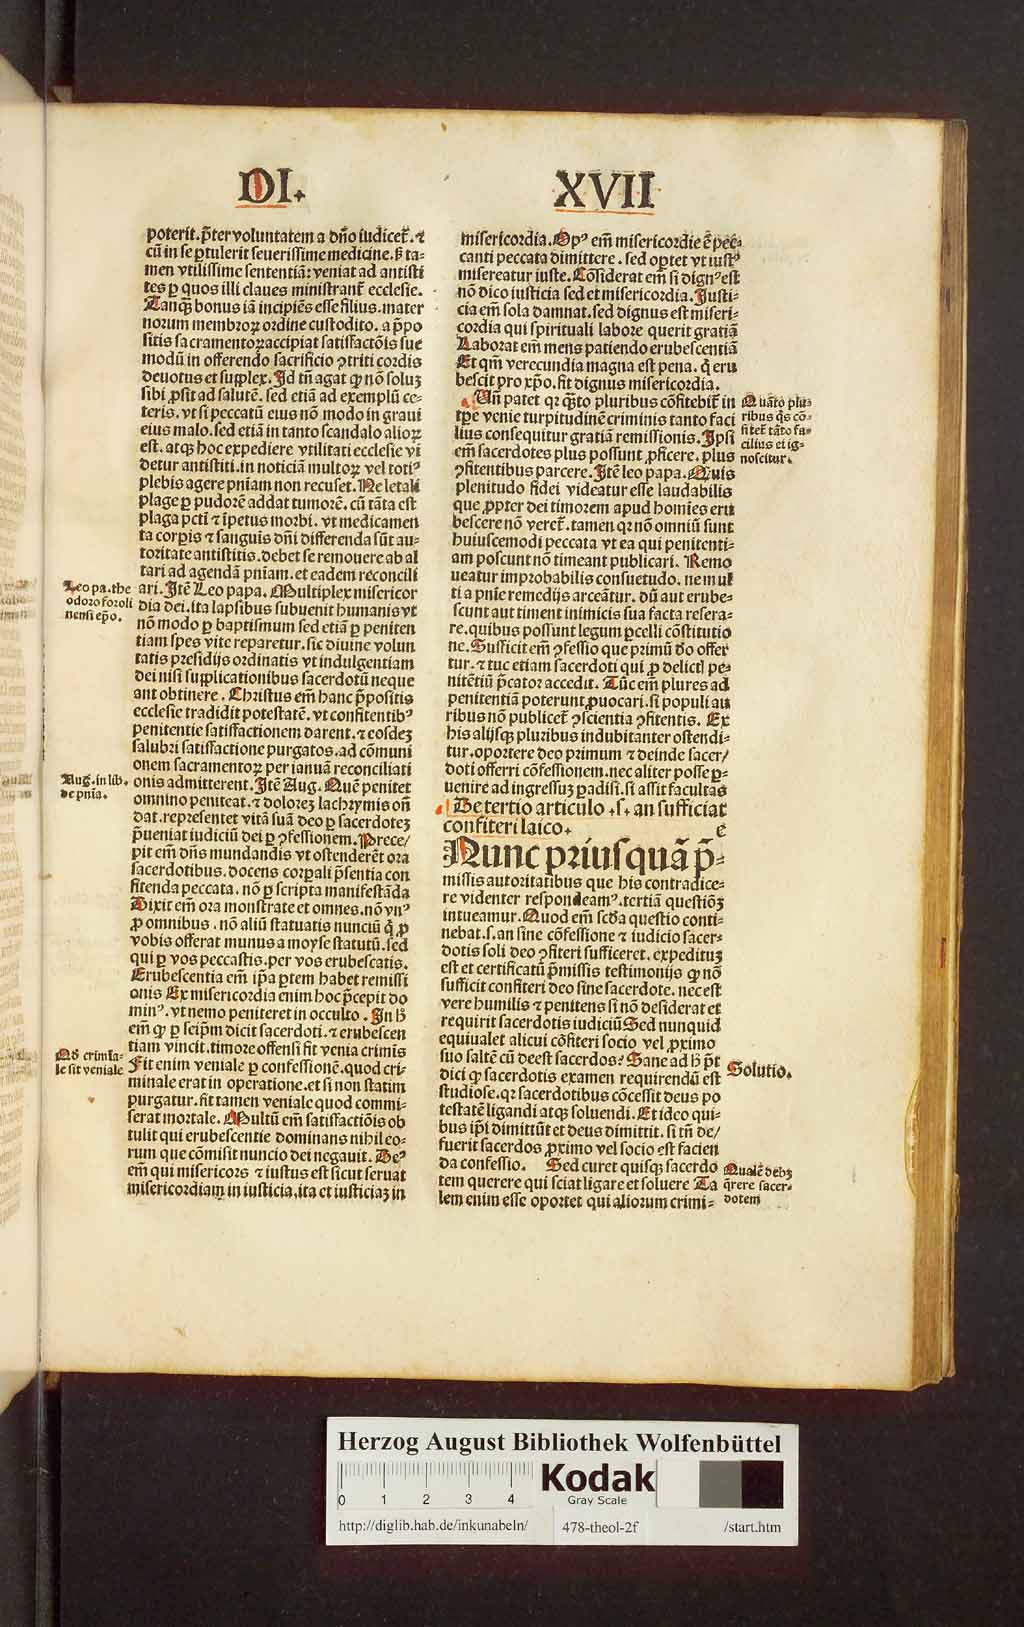 DI.
XVII
poterit. p̃ter voluntatem a dño iudicet᷑. ⁊
cũ in se ꝑtulerit seuerissime medicine. ß ta-
men vtilissime sententiã: veniat ad antisti
tes ꝑ quos illi claues ministrant᷑ ecclesie.
Tanqꝫ bonus iã incipiẽs esse filius. mater
norum membroꝝ ordine custodito. a p̃po
sitis sacramentoꝝ accipiat satisfactõis sue
modũ in offerendo sacrificio ꝯtriti cordis
deuotus et supplex. Id tñ agat ꝙ nõ soluꝫ
sibi ꝓsit ad salutẽ. sed etiã ad exemplũ ce-
teris. vt si peccatũ eius nõ modo in graui
eius malo. sed etiã in tanto scandalo alioꝝ
est. atqꝫ hoc expedire vtilitati ecclesie vi
detur antistiti. in noticiã multoꝝ vel toti⁹
plebis agere pniam non recuset. Ne letali
plage ꝑ pudorẽ addat tumorẽ. cũ tãta est
plaga pcti ⁊ ĩpetus morbi. vt medicamen
ta corpis ⁊ sanguis dñi differenda sũt au-
toritate antistitis. debet se remouere ab al
tari ad agendã pniam. et eadem reconcili
ari. Itẽ Leo papa. Multiplex misericor
dia dei. ita lapsibus subuenit humanis vt
nõ modo ꝑ baptismum sed etiã ꝑ peniten
tiam spes vite reparetur. sic diuine volun
tatis presidijs ordinatis vt indulgentiam
dei nisi supplicationibus sacerdotũ neque
ant obtinere. Christus em̃ hanc p̃positis
ecclesie tradidit potestatẽ. vt confitentib⁹
penitentie satisfactionem darent. ⁊ eosdeꝫ
salubri satisfactione purgatos. ad cõmuni
onem sacramentoꝝ per ianuã reconciliati
onis admitterent. Itẽ Aug. Quẽ penitet
omnino peniteat. ⁊ doloreꝫ lachrymis oñ
dat. representet vitã suã deo ꝑ sacerdoteꝫ
p̃ueniat iudiciũ dei ꝑ ꝯfessionem. Prece/
pit em̃ dñs mundandis vt ostenderẽt ora
sacerdotibus. docens corpali p̃sentia con
fitenda peccata. nõ ꝑ scripta manifestãda
Dixit em̃ ora monstrate et omnes. nõ vn⁹
ꝓ omnibus. nõ aliũ statuatis nunciũ q̃ ꝓ
vobis offerat munus a moyse statutũ. sed
qui ꝑ vos peccastis. per vos erubescatis.
Erubescentia em̃ ip̃a ꝑtem habet remissi
onis Ex misericordia enim hoc p̃cepit do
min⁹. vt nemo peniteret in occulto. In h̃
em̃ ꝙ ꝑ seip̃m dicit sacerdoti. ⁊ erubescen
tiam vincit. timore offensi fit venia crimis
Fit enim veniale ꝑ confessionẽ. quod cri-
minale erat in operatione. et si non statim
purgatur. fit tamen veniale quod commi-
serat mortale. Multũ em̃ satisfactiõis ob
tulit qui erubescentie dominans nihil eo-
rum que cõmisit nuncio dei negauit. De⁹
em̃ qui misericors ⁊ iustus est sicut seruat
misericordiam in iusticia. ita et iusticiaꝫ in
Leo pa. the
odoro foroli
nensi ep̃o.
Aug. in lib.
de pnia.
Nõ crimĩa-
le fit veniale
misericordia. Op⁹ em̃ misericordie ẽ pec-
canti peccata dimittere. sed oportet vt iust⁹
misereatur iuste. Cõsiderat em̃ si dign⁹ est
nõ dico iusticia sed et misericordia. Iusti-
cia em̃ sola damnat. sed dignus est miseri-
cordia qui spirituali labore querit gratiã
Laborat em̃ mens patiendo erubescentiã
Et qm̃ verecundia magna est pena. q̃ eru
bescit pro xp̃o. fit dignus misericordia.
Vñ patet qꝛ q̃to pluribus cõfitebit᷑ in
spe venie turpitudinẽ criminis tanto faci
lius consequitur gratiã remissionis. Ipsi
em̃ sacerdotes plus possunt ꝓficere. plus
ꝯfitentibus parcere. Itẽ leo papa. Quis
plenitudo fidei videatur esse laudabilis
que ꝓpter dei timorem apud homies eru
bescere nõ veret᷑. tamen qꝛ nõ omniũ sunt
huiuscemodi peccata vt ea qui penitenti-
am poscunt nõ timeant publicari. Remo
ueatur improbabilis consuetudo. ne mul
ti a pnie remedijs arceãtur. dũ aut erube-
scunt aut timent inimicis sua facta resera-
re. quibus possunt legum ꝑcelli cõstitutio
ne. Sufficit em̃ ꝯfessio que primũ dõ offer
tur. ⁊ tuc etiam sacerdoti qui ꝓ delictꝭ pe-
nitẽtiũ p̃cator accedit. Tũc em̃ plures ad
penitentiã poterunt ꝓuocari. si populi au
ribus nõ publicet᷑ ꝯscientia ꝯfitentis. Ex
his alijsqꝫ pluribus indubitanter ostendi-
tur. oportere deo primum ⁊ deinde sacer/
doti offerri cõfessionem. nec aliter posse ꝑ-
uenire ad ingressuꝫ ꝑadisi. si assit facultas
De tertio articulo .s. an sufficiat
confiteri laico. c
Nunc priusquã p̃-
missis autoritatibus que his contradice-
re videnter respondeam⁹. tertiã questiõꝫ
intueamur. Quod em̃ scda questio conti-
nebat. s. an sine cõfessione ⁊ iudicio sacer-
dotis soli deo ꝯfiteri sufficeret. expedituꝫ
est et certificatũ p̃missis testimonijs ꝙ nõ
sufficit confiteri deo sine sacerdote. nec est
vere humilis ⁊ penitens si nõ desiderat et
requirit sacerdotis iudiciũ Sed nunquid
equiualet alicui cõfiteri socio vel ꝓximo
suo saltẽ cũ deest sacerdos? Sane ad h̃ p̃t
dici ꝙ sacerdotis examen requirendũ est
studiose. qꝛ sacerdotibus cõcessit deus po
testatẽ ligandi atqꝫ soluendi. Et ideo qui-
bus ip̃i dimittũt et deus dimittit. si tñ de/
fuerit sacerdos ꝓximo vel socio est facien
da confessio. Sed curet quisqꝫ sacerdo
tem querere qui sciat ligare et soluere Ta
lem enim esse oportet qui aliorum crimi-
Quãto plu-
ribus qs cõ-
fitet᷑ tãto fa-
cilius ei ig-
noscitur.
Solutio.
Qualẽ debꝫ
q̃rere sacer-
dotem
Herzog August Bibliothek Wolfenbüttel
0 1 2 3 4
Kodak
Gray Scale
http://diglib.hab.de/inkunabeln/ 478-theol-2f /start.htm